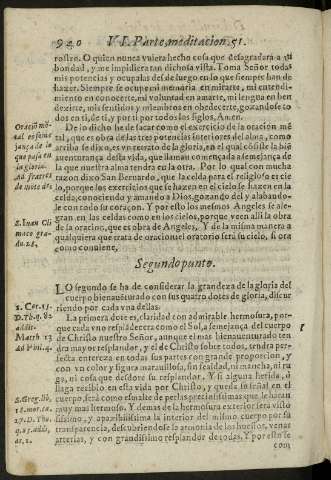 940 VI. Parte, meditacion. 51.
rostro. O quien nunca vuiera hecho cosa que desagradara a tu
bondad, y me impidiera tan dichosa vista. Toma Señor todas
mis potencias y ocupalas desde luego en lo que siempre han de
hazer. Siempre se ocupe mi memoria en mirarte, mi entendi-
miento en conocerte, mi voluntad en amarte, mi lengua en ben
dezirte, mis sentidos y miembros en obedecerte, gozandose to
dos en ti, de ti, y por ti por todos los siglos, Amen.
De lo dicho se de sacar como el exercicio de la oracion mé
tal, que es obra de las tres potencias interiores del alma, como
arriba se dixo, es vn retrato de la gloria, en el qual cósiste la biē
auenturança desta vida, que llaman començada a semejança de
la que nuestra alma tendra en la otra. Por lo qual con mucha
razon dixo San Bernardo, que la celda para el religioso es cie
lo, porque los exercicios que se hazen en el cielo se hazen en la
celda, conociendo y amando a Dios, gozando del y alabando-
le con todo su coraçon. Y por esto los mesmos Angeles se ale-
gran en las celdas como en los cielos, porque veen alli la obra
de la oracion, que es obra de Angeles, Y de la misma manera a
qualquiera que trata de oracion el oratorio será su cielo, si ora
como conuiene.
Oració mē-
tal es seme
jança de lo
que passa en
la gloria.
Ad fratres
de mōte dei
S. Iuan Cli
maco gra-
du.
Segundo punto.
LO segundo se ha de considerar la grandeza de la gloria del
cuerpo bienauēturado con sus quatro dotes de gloria, discur
riendo por cada vna dellas.
La primera dote es, claridad con admirable hermosura, por-
que cada vno resplādecera como el Sol, a semejança del cuerpo
de Christo nuestro Señor, aunque el mas bienauenturado ten
dra mayor resplandor, y el de Christo sobre todos, tendra per-
fecta entereza en todas sus partes con grande proporcion, y
con vn color y figura marauillosa, sin fealdad, ni mancha, ni ru
ga, ni cosa que desdore su resplandor, Y si alguna herida, ó
llaga recibio en esta vida por Christo, y queda su señal en el
cuerpo será como esmalte de perlas preciosissimas que le haran
muy mas hermoso. Y demas de la hermosura exterior será vistó
sissimo, y apazibilissima la interior del mismo cuerpo por su
transparencia, descubriendose la armonia de los huessos, venas
arterias, y con grandissimo resplandor de todas. Y por esto se
com
1. Cor. 15.
D. Th. q. 82
addit.
Matth 13
ad Phil. 4.
S. Greg. lib.
18. mor. ca.
27. D. Tho.